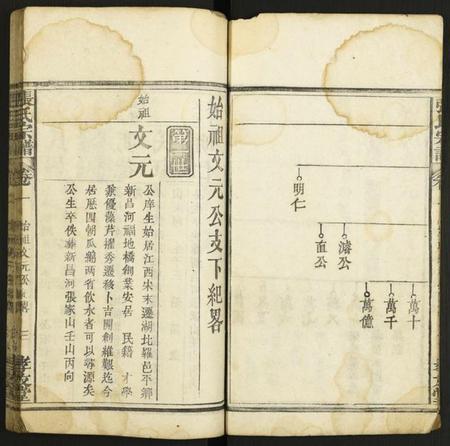 張氏宗譜
卷
明仁
濬公
血公
萬十
萬千
萬億
始祖文元公支下紀畧
始祖
文元
公庠生始居江西宋末遷湖北羅邑平鄉
新昌河福地橋創業安居
民籍
才學
兼優藻芹擢秀遷移卜吉開創維艱迄今
居歷四朝瓜綿兩省飲水者可以尋源矣
公生卒佚葬新昌河張家山壬山丙向
張氏宗譜
卷一
始祖文元公
三
孝友堂